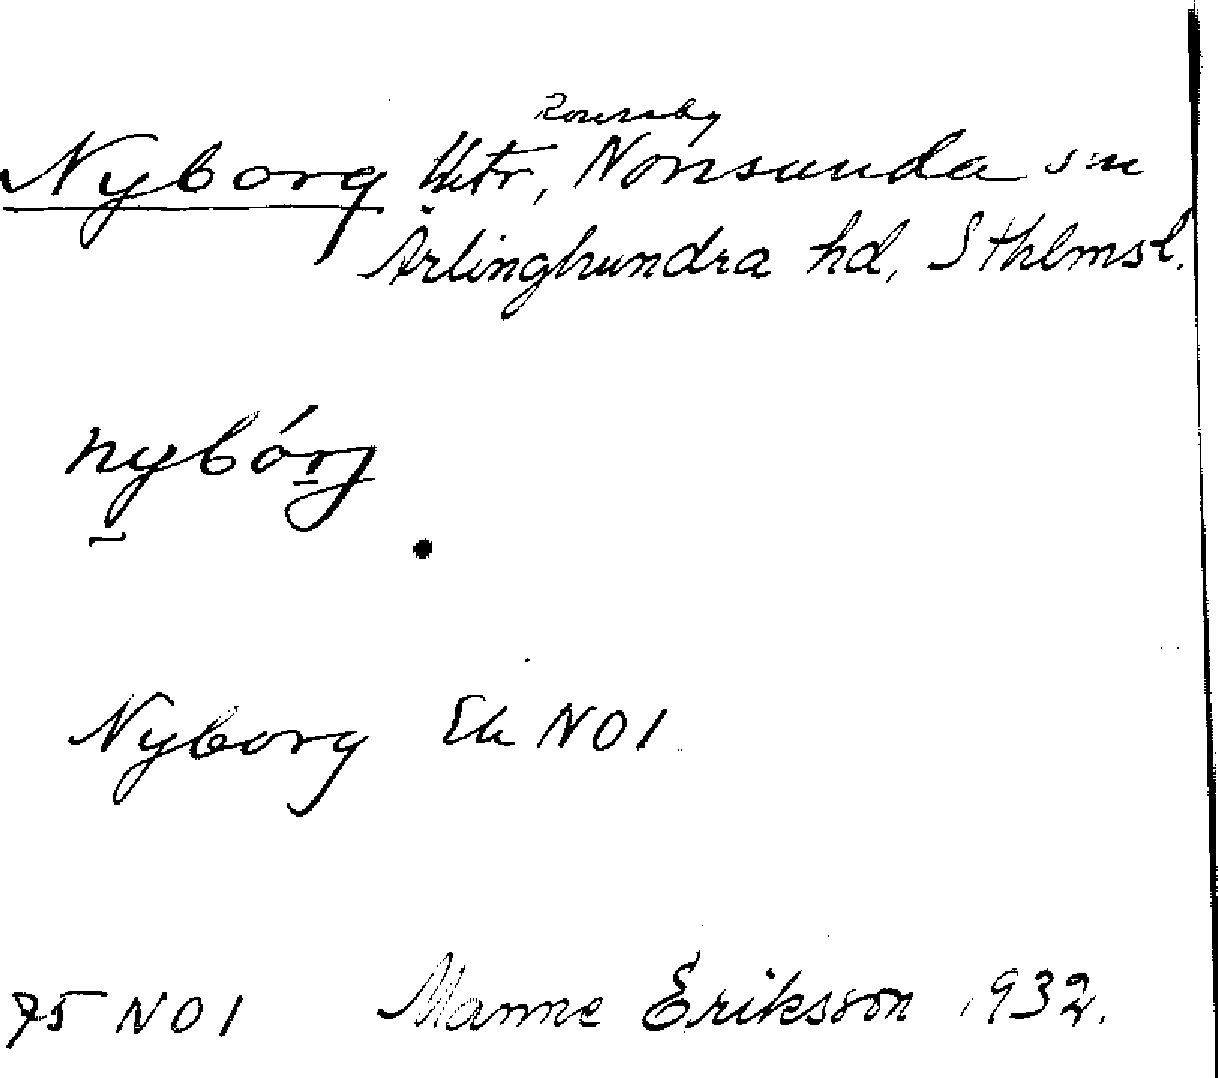 Rosersby
Nyborg Utr, Norrsunda sn
Ärlinghundra hd, Sthlmsl.
nybórj
Nyborg Ek NO1
75 NO1 Manne Eriksson 1932.